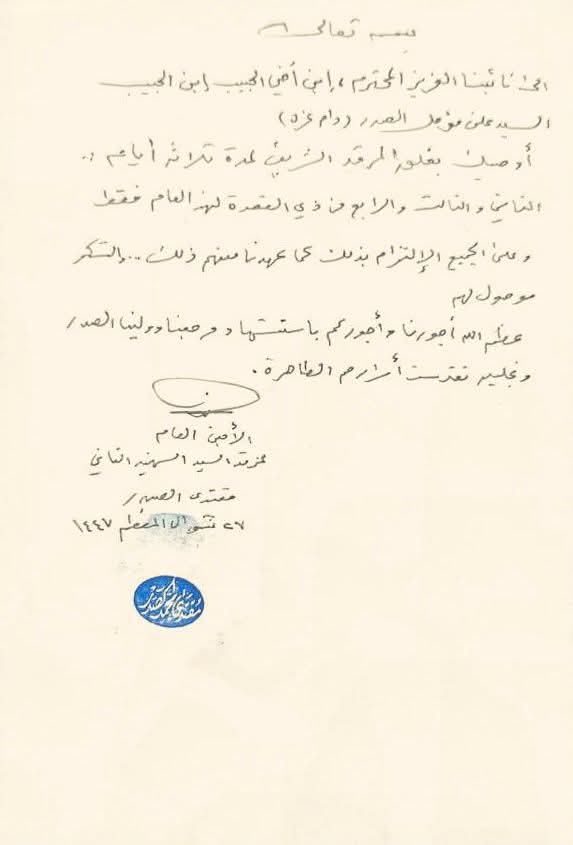 بسمه تعالى
الى نائبنا العزيز المحترم ، إبن أخي الحبيب إبن الحبيب
السيد علي مؤمل الصدر (دام عزه)
أوصيك بغلق المرقد الشريف لمدة ثلاثة أيام ..
الثاني والثالث والرابع من ذي القعدة لهذا العام فقط
وعلى الجميع الإلتزام بذلك كما عهدنا منهم ذلك ... والشكر
موصول لهم
عظم الله أجورنا وأجوركم باستشهاد مرجعنا وولينا الصدر
ونجليه تقدست أسرارهم الطاهرة .
الأمين العام
لمرقد السيد الشهيد الثاني
مقتدى الصدر
٢٧ شوال المعظم ١٤٤٧
مقتدى الصدر